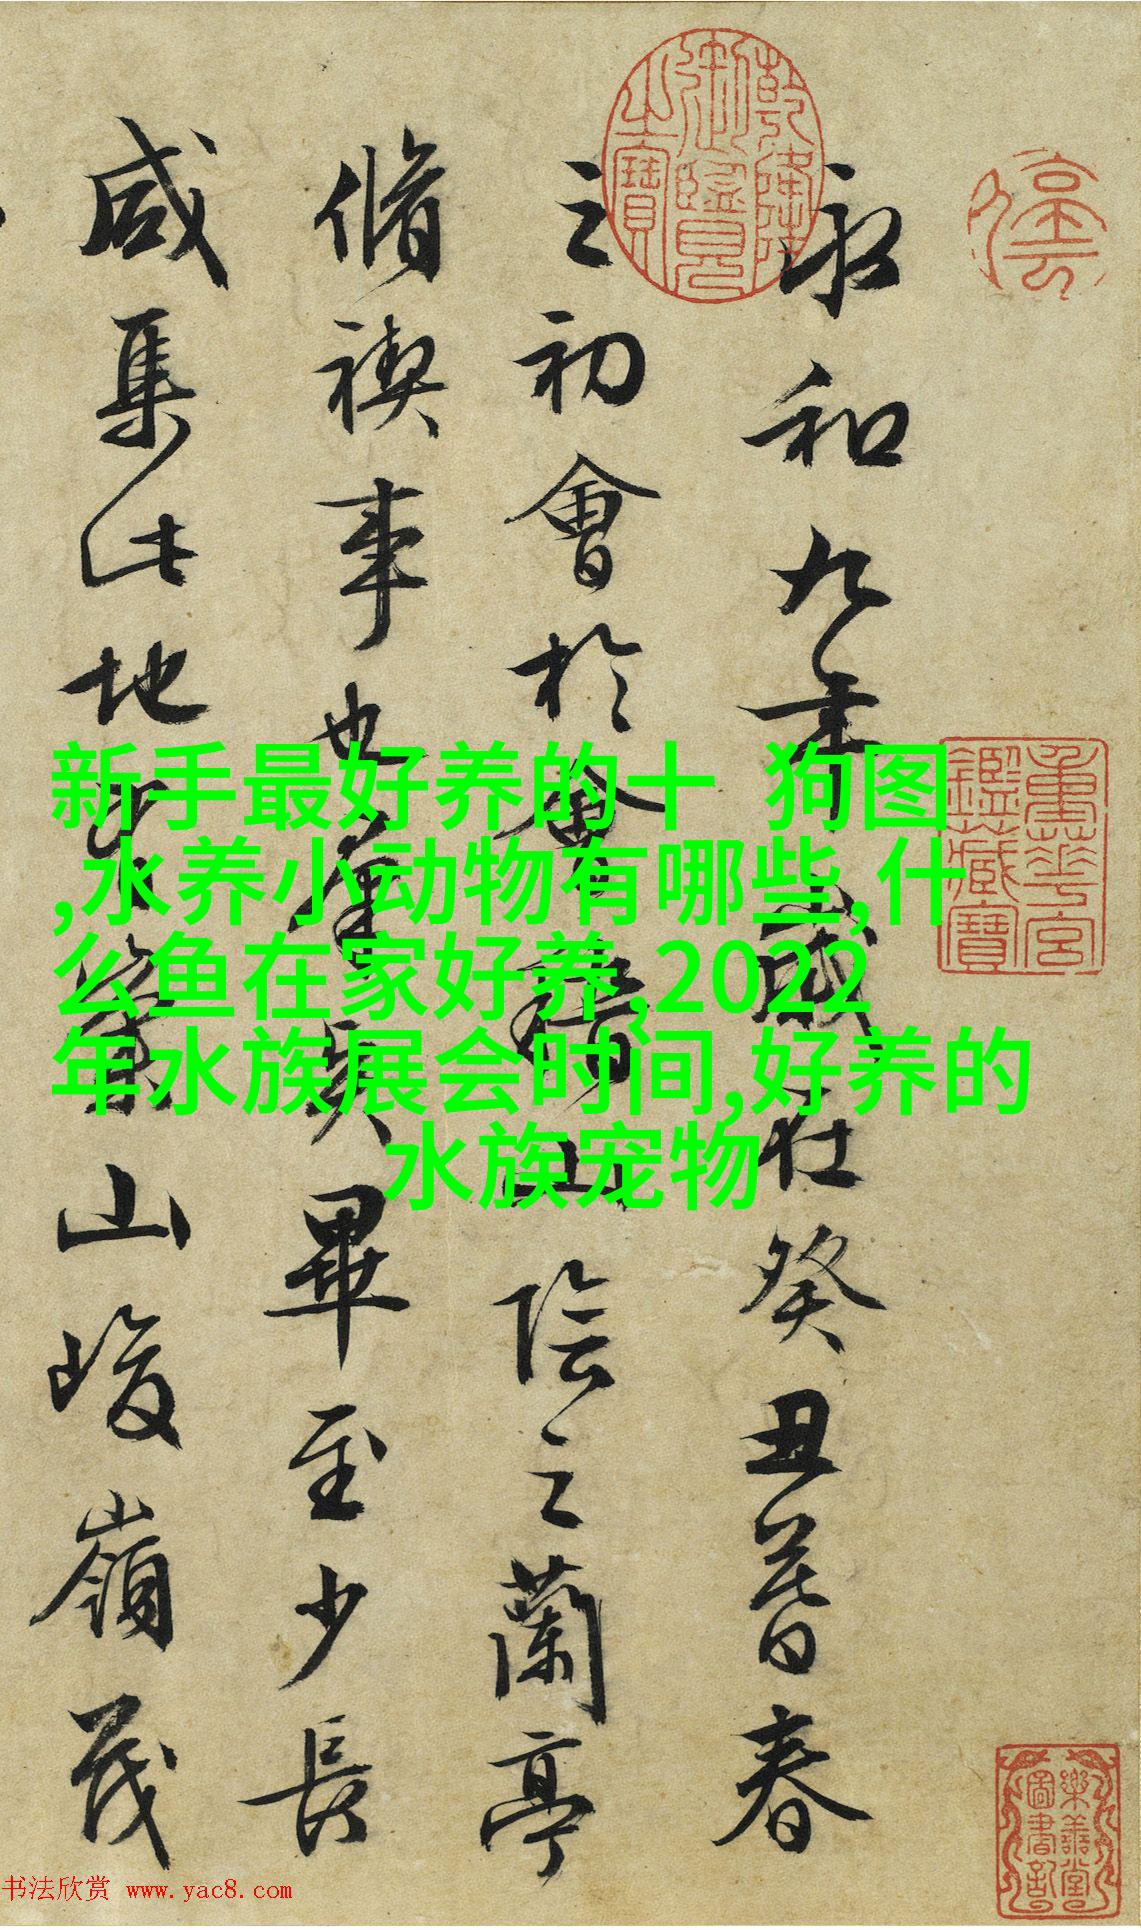 乾隆
御鑑
之寶
重華宮
鑑藏寶
樂善堂
圖書記
永和九年歲在癸丑暮春
之初會於會稽山陰之蘭亭
脩禊事也羣賢畢至少長
咸集此地有崇山峻嶺茂
新手最好养的十 狗图
,水养小动物有哪些,什
么鱼在家好养,2022
年水族展会时间,好养的
水族宠物
书法欣赏 www.yac8.com